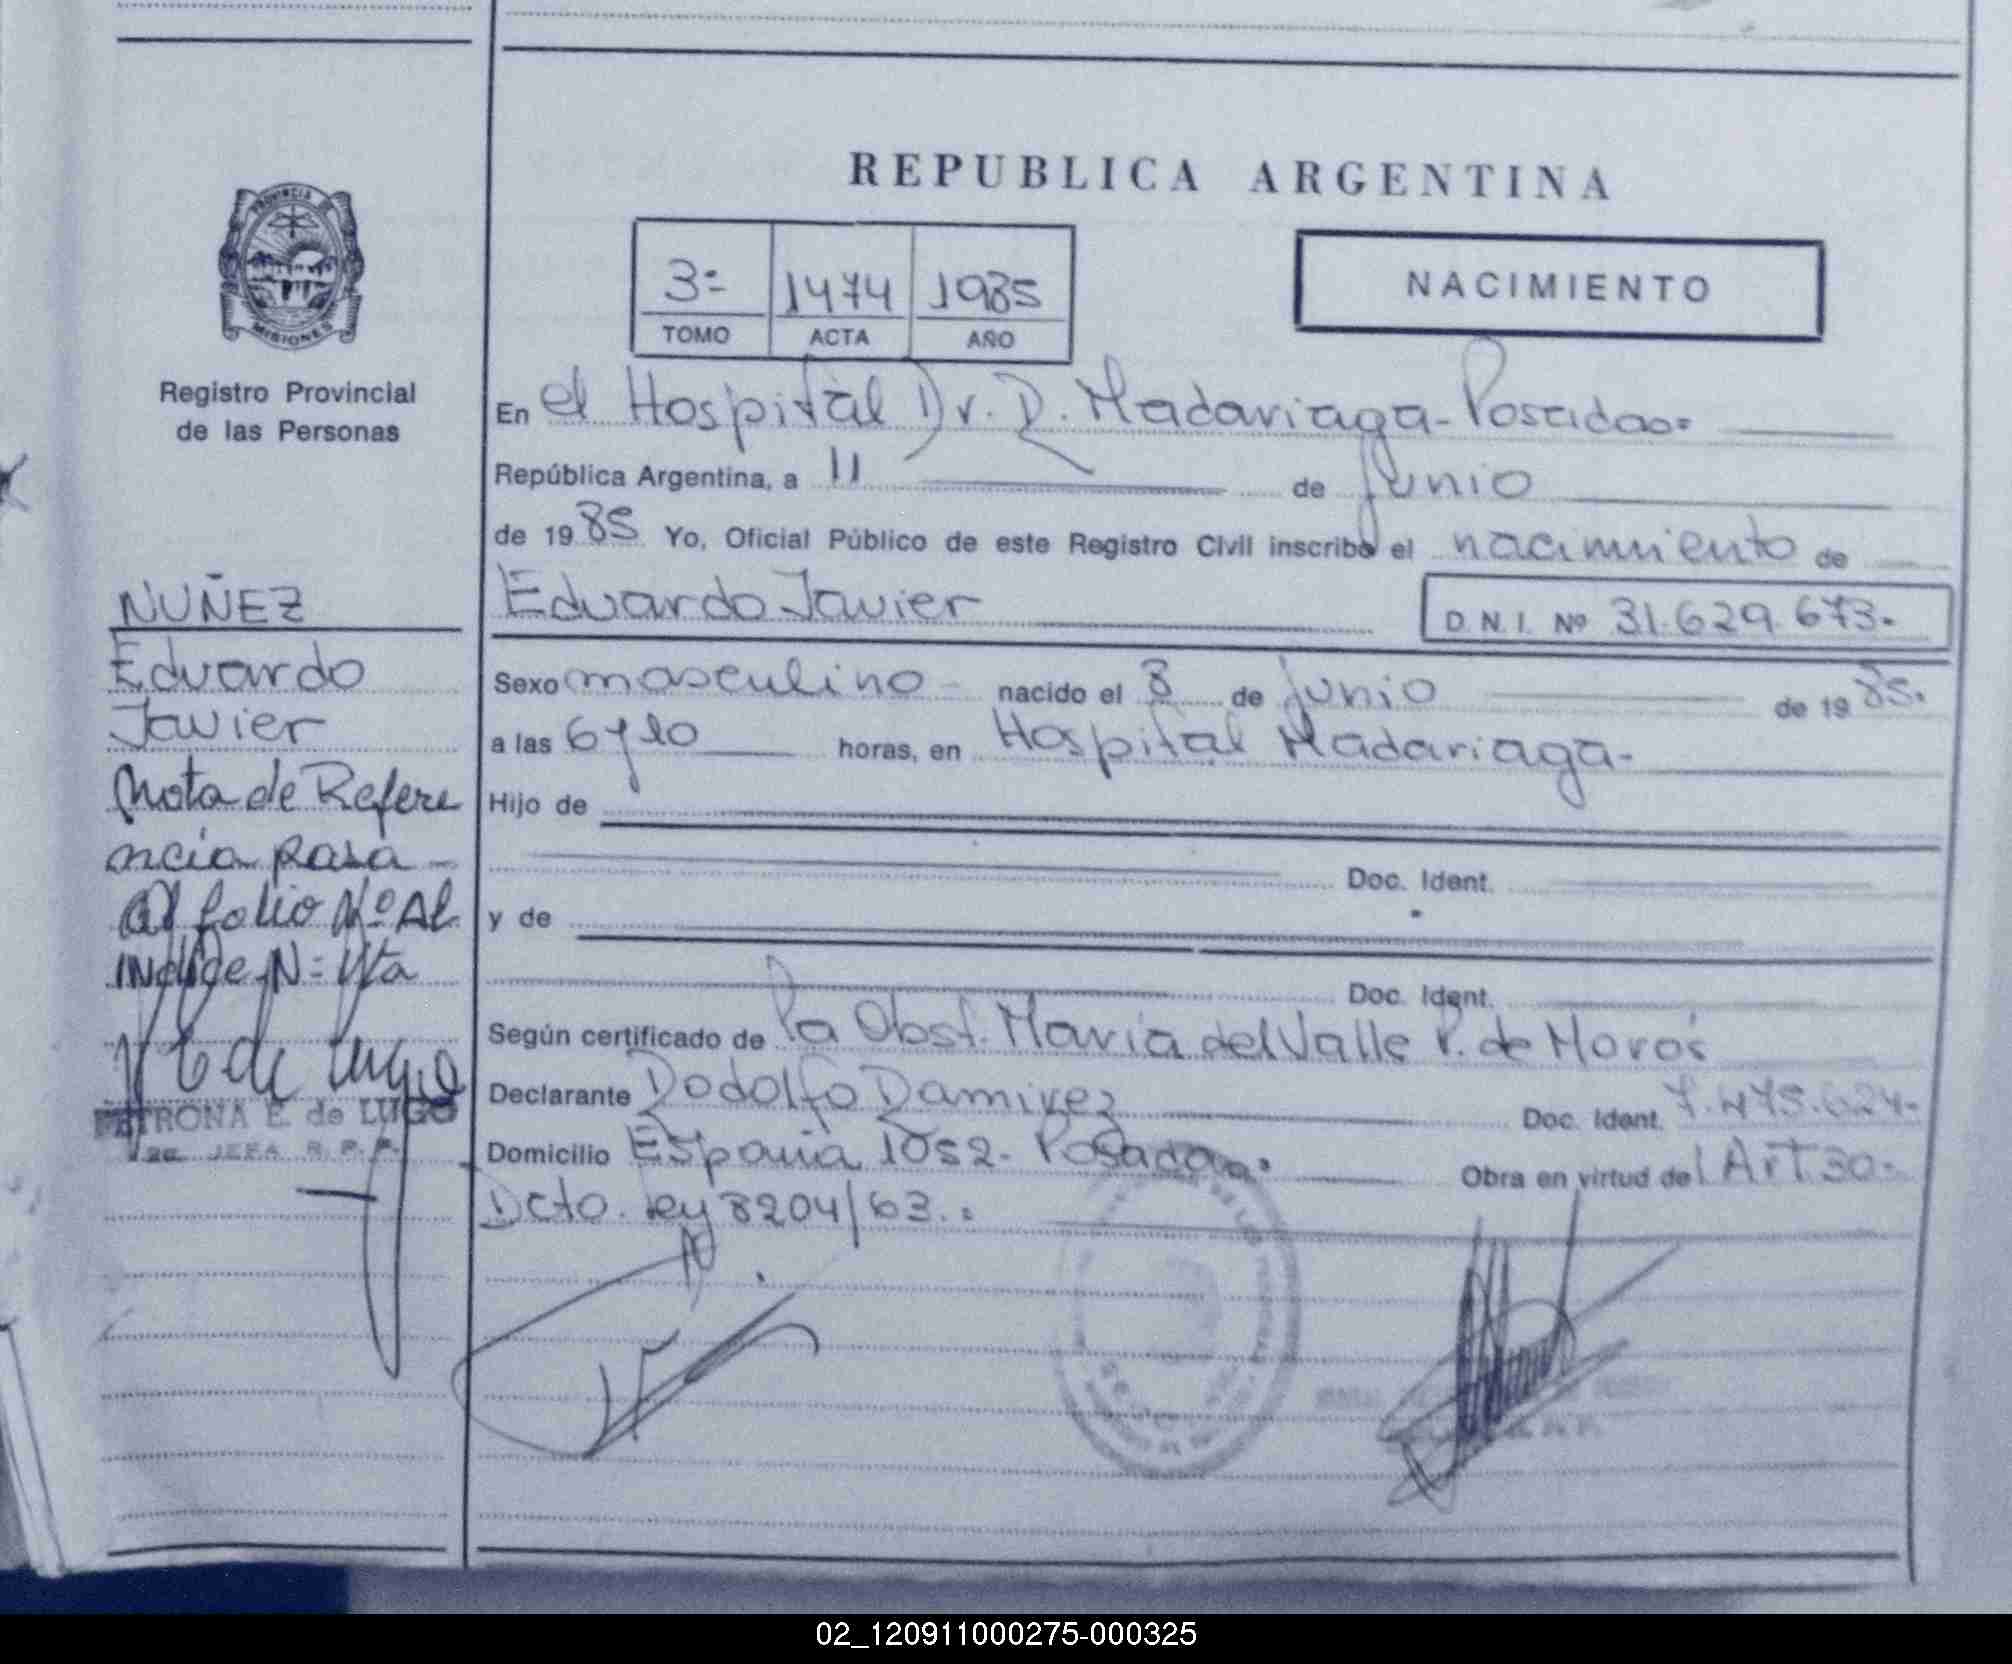 REPUBLICA ARGENTINA
PROVINCIA DE
MISIONES
Registro Provincial
de las Personas
3=
1474
1985
TOMO
ACTA
AÑO
NACIMIENTO
En el Hospital Dr. R. Madariaga - Posadas=
República Argentina, a 11 de junio
de 1985 Yo, Oficial Público de este Registro Civil inscribo el nacimiento de
Eduardo Javier
D.N.I. Nº 31.629.673.-
Sexo masculino - nacido el 8 de junio de 1985.
a las 6 y 10 horas, en Hospital Madariaga-
Hijo de
Doc. Ident.
y de
Doc. Ident.
Según certificado de la Obst. María del Valle P. de
Declarante Rodolfo Ramirez Doc. Ident. 7.475.624-
Domicilio España 1052- Posadas. Obra en virtud del Art 30-
Dcto. Ley 8204/63.=
NUÑEZ
Eduardo
Javier
Nota de Refere
ncia pasa
al folio Nº Al
INdice N=
PETRONA E. de LUGO
JEFA R.P.P.
02_120911000275-000325